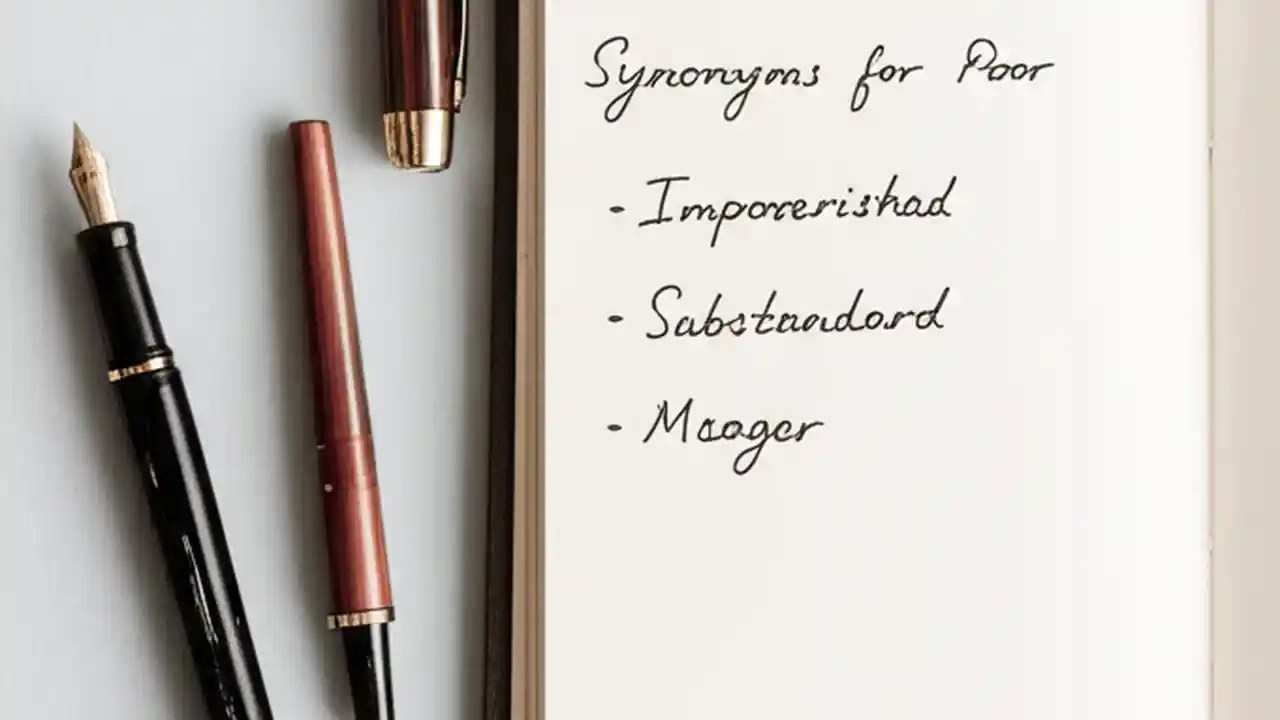 Synonyms for Poor
- Imporerishad
- Sabstandard
- Meager